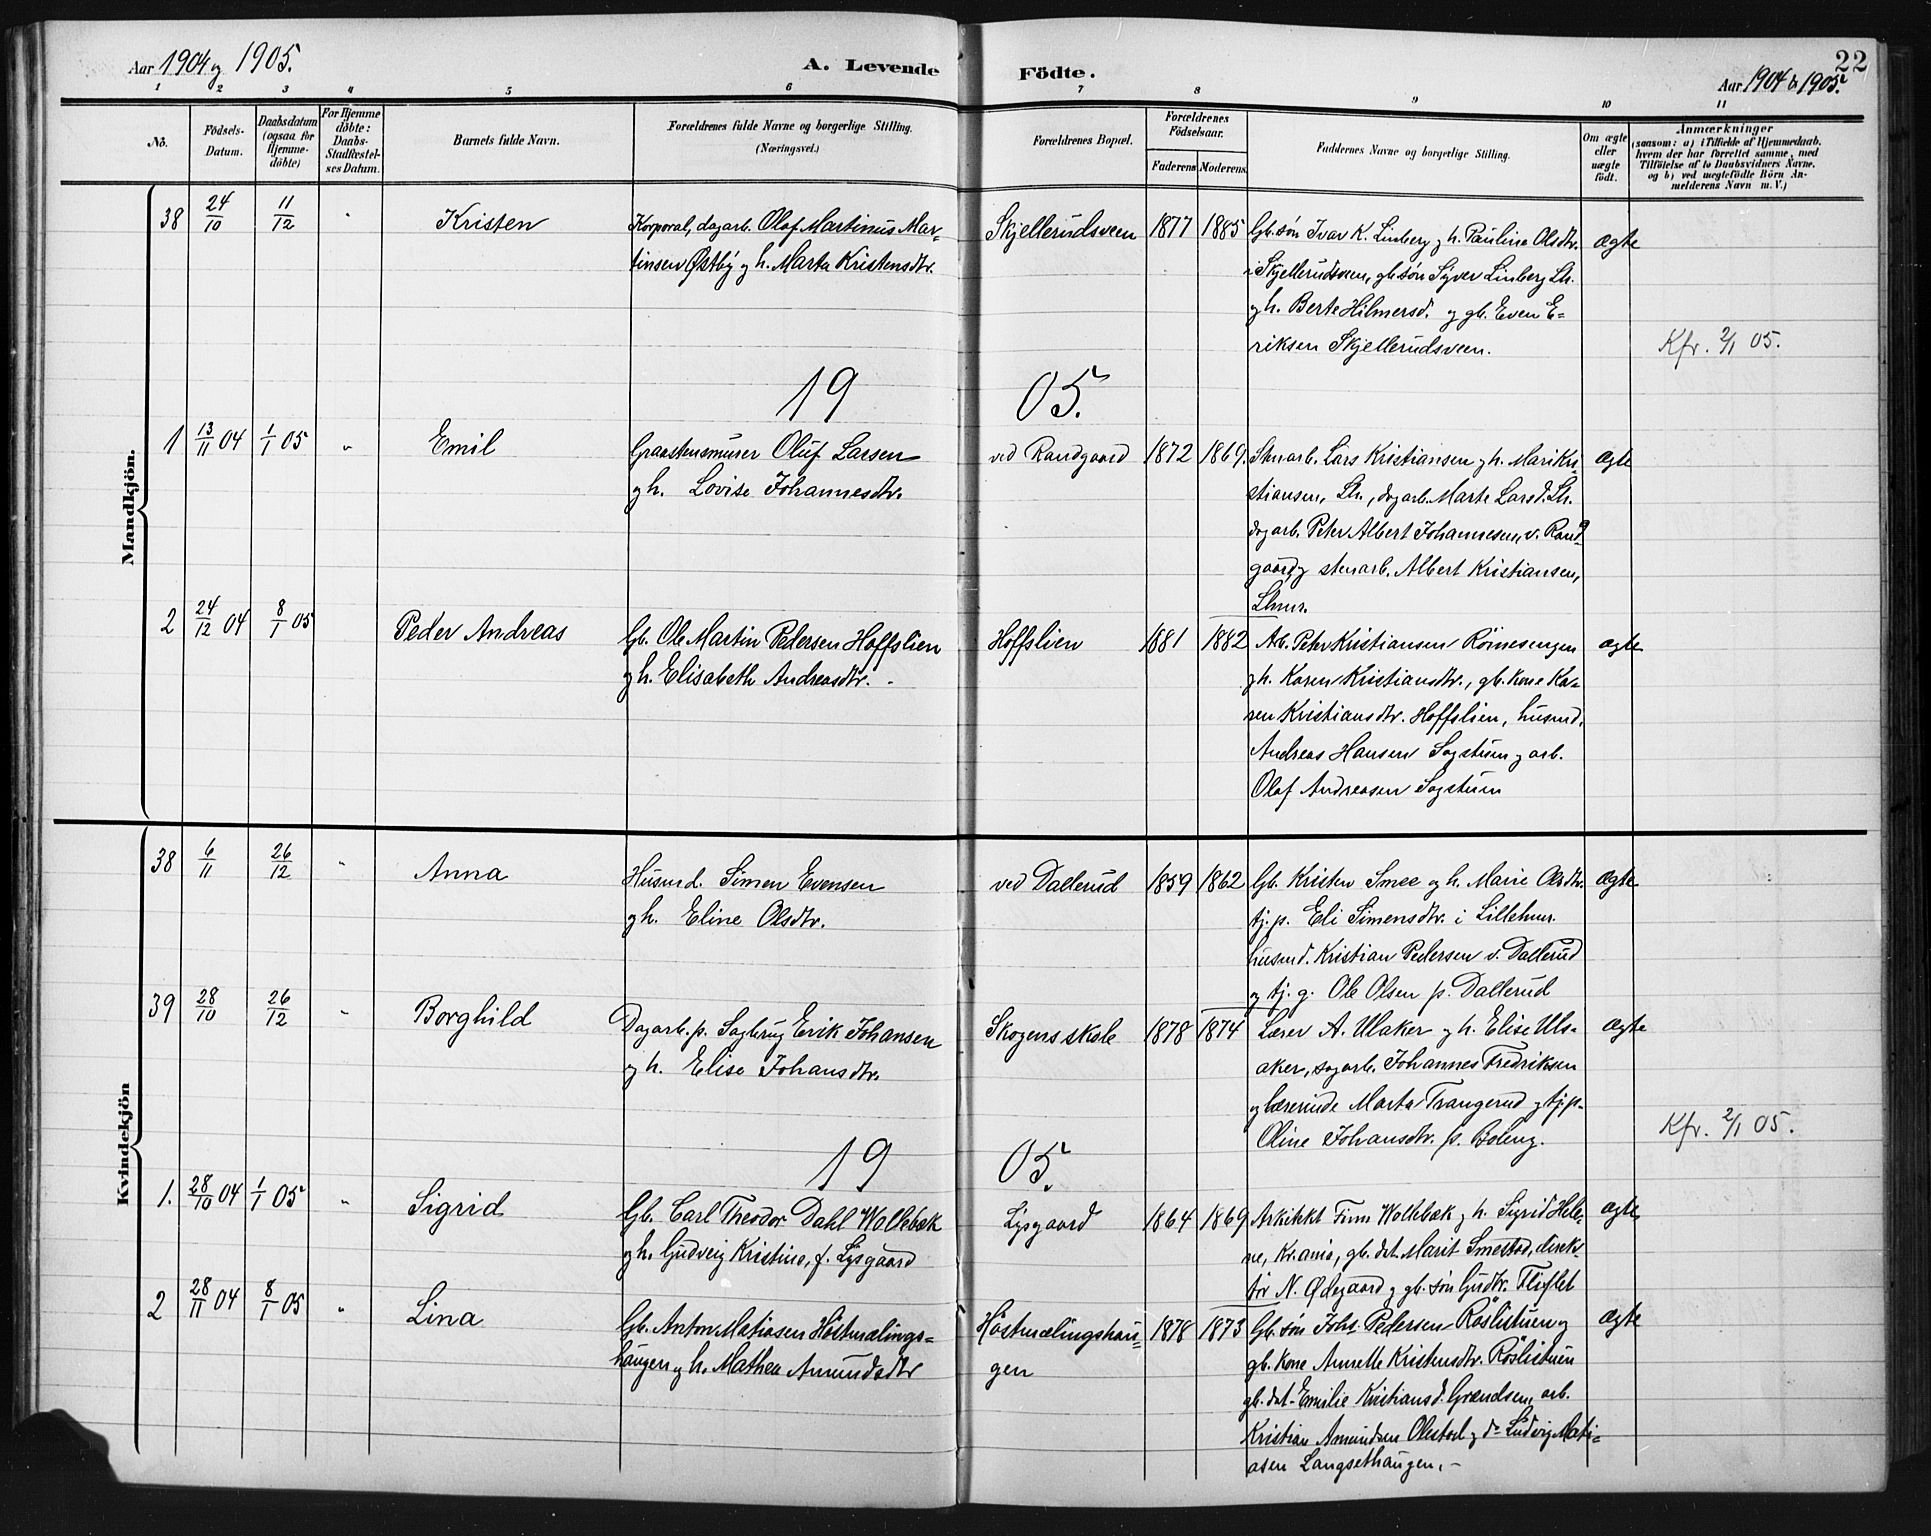 Aar 1904 og 1905.
A. Levende Födte.
22
Aar 1904 & 1905.
1 2 3 4 5 6 7 8 9 10 11
No.
Födsels-
Datum.
Daabsdatum
(ogsaa for
Hjemme-
döbte)
For Hjemme
döbte:
Daabs-
Stadfæstel-
ses Datum.
Barnets fulde Navn.
Forældrenes fulde Navne og borgerlige Stilling.
(Næringsvei.)
Forældrenes Bopæl.
Forældrenes
Födselsaar.
Faderens Moderens
Faddernes Navne og borgerlige Stilling.
Om ægte
eller
uægte
födt.
Anmærkninger
(saasom: a) i Tilfælde af Hjemmedaab.
hvem der har forrettet samme, med
Tilföielse af to Daabsvidners Navne.
og b) ved uægtefödte Börn An-
melderens Navn m. V.)
Mandkjön.
38 24/10 11/12 " Kristen
Korporal, dagarb. Olaf Martinus Mar-
tinsen Østby og h. Marta Kristensdtr.
Skjellerudsveen 1877 1885
Gb. søn Ivar K. Linberg og h. Pauline Olsdtr.
i Skjellerudsveen, gb. søn Syver Linberg Lh.
og h. Berte Hilmersd. og gb. Even E-
riksen Skjellerudsveen.
Ægte
Kfr. 2/1 05.
1905.
1 13/11 04 1/1 05 " Emil
Graastensmurer Oluf Larsen
og h. Lovise Johannesdtr.
ved Randgaard 1872 1869.
Stenarb. Lars Kristiansen og h. Mari Kri
stiansen, Lh., dagarb. Marte Larsd. Lh.
dagarb. Peter Albert Johannesen, v. Rand-
gaard og stenarb. Albert Kristiansen,
Lhmr.
Ægte
2 24/12 04 8/1 05 Peder Andreas
Gb. Ole Martin Pedersen Hoffslien
og h. Elisabeth Andreasdtr.
Hoffslien 1881 1882
Arb. Peter Kristiansen Römesengen
og h. Karen Kristiansdtr., gb. kone Ka-
ren Kristiansdtr. Hoffslien, husmd.
Andreas Hansen Sagstuen og arb.
Olaf Andreasen Sagstuen
Ægte
Kvindekjön
38 6/11 26/12 " Anna
Husmd. Simen Evensen
og h. Eline Olsdtr.
ved Dallerud 1859 1862
Gb. Kristen Smee og h. Marie Olsdtr.
tj. p. Eli Simensdtr. i Lillehmr.
husmd. Kristian Pedersen v. Dallerud
og tj. g. Ole Olsen p. Dallerud
Ægte
39 28/10 26/12 " Borghild
Dagarb. p. Sagbrug Erik Johansen
og h. Elise Johansdtr.
Skogens skole 1878 1874
Lærer A. Ulaker og h. Elise Uls-
aker, sagarb. Johannes Fredriksen
og lærerinde Marta Trangerud og tj. p.
Oline Johansdtr. p.
Ægte
Kfr. 2/1 05.
1905.
1. 28/10 04 1/1 05 " Sigrid
Gb. Carl Theodor Dahl Wollebæk
og h. Gudveig Kristine, f. Lysgaard
Lysgaard 1864 1869
Arkitekt Finn Wollebæk og h. Sigrid Hele-
ne, Kr.ania, gb. dat. Marit Smestad, direk-
tör N. Ødegaard og gb. søn Gudbr. Fliflet
Ægte
2 28/11 04 8/1 05 " Lina
Gb. Anton Matiasen Höstmælings-
haugen og h. Mathea Amundsdtr
Höstmælingshau-
gen
1878 1873
Gb. søn Johs. Pedersen Röslistuen og
gb. kone Annette Kristensdtr. Röslistuen
gb. dat. Emilie Kristiansd. Grændsen, arb.
Kristian Amundsen Olestad og do Ludvig Mati-
asen Langsethaugen.
Ægte